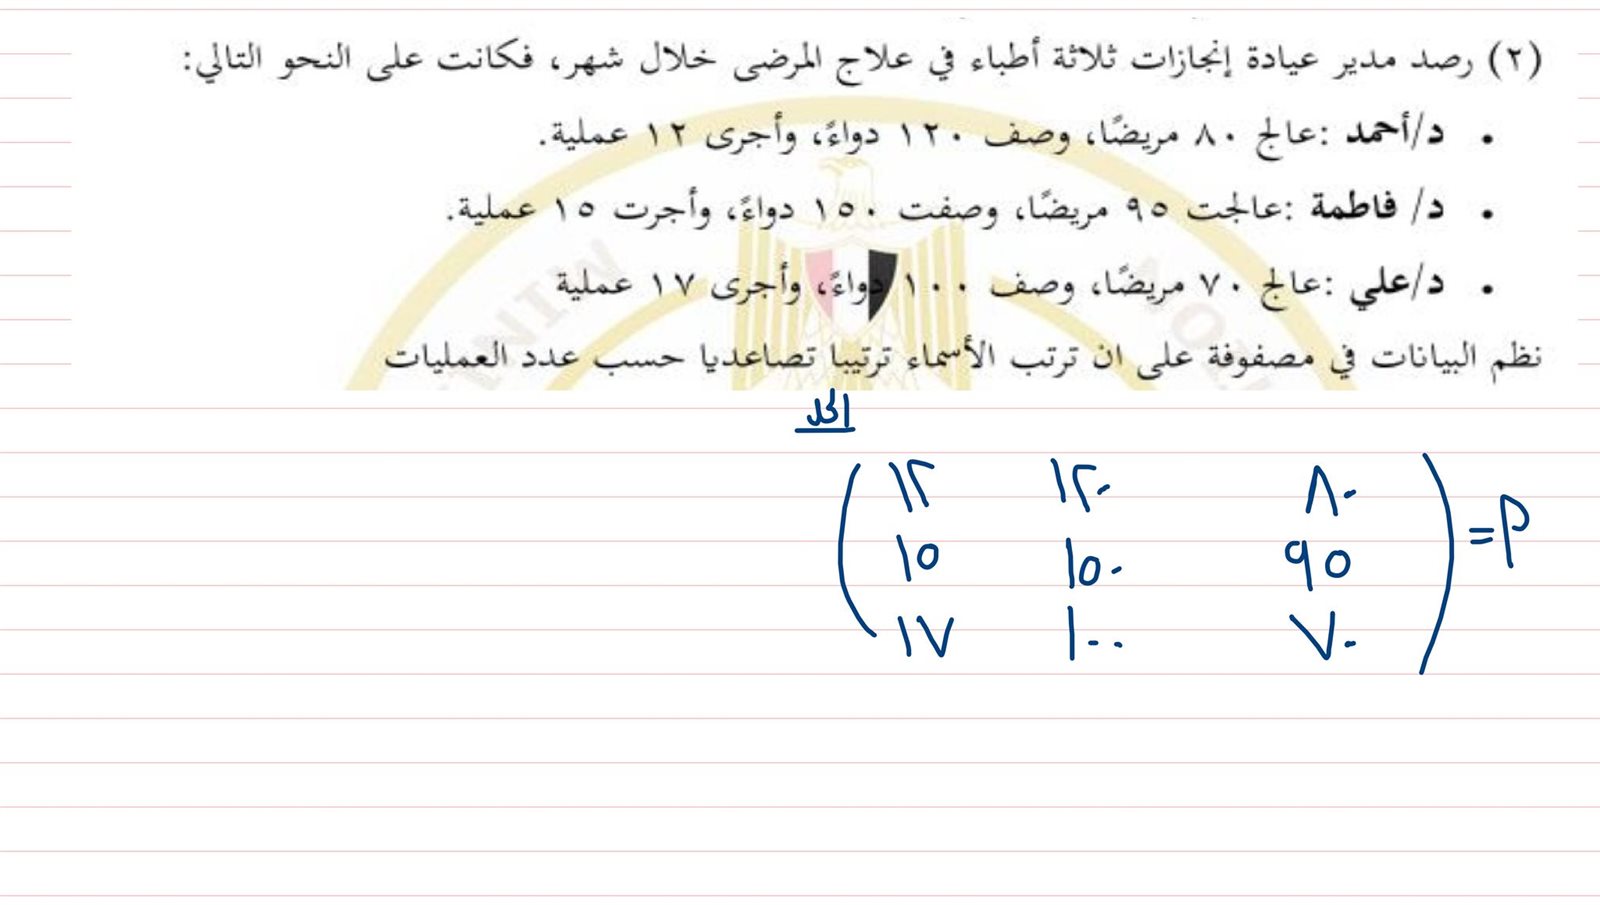 (٢) رصد مدير عيادة إنجازات ثلاثة أطباء في علاج المرضى خلال شهر، فكانت على النحو التالي:
• د/أحمد :عالج ٨٠ مريضًا، وصف ١٢٠ دواءً، وأجرى ١٢ عملية.
• د/ فاطمة :عالجت ٩٥ مريضًا، وصفت ١٥٠ دواءً، وأجرت ١٥ عملية.
• د/علي :عالج ٧٠ مريضًا، وصف ١٠٠ دواءً، وأجرى ١٧ عملية
نظم البيانات في مصفوفة على ان ترتب الأسماء ترتيبا تصاعديا حسب عدد العمليات
الحل
م = ( ٨٠ ١٢٠ ١٢
٩٥ ١٥٠ ١٥
٧٠ ١٠٠ ١٧ )